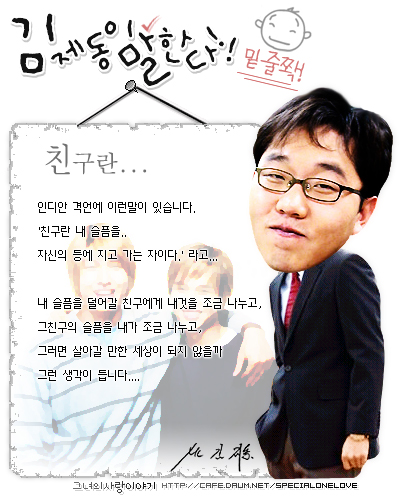 김제동이 말한다!
밑줄쫙!
친구란...
인디안 격언에 이런말이 있습니다.
'친구란 내 슬픔을..
자신의 등에 지고 가는 자이다.' 라고...
내 슬픔을 덜어갈 친구에게 내것을 조금 나누고,
그친구의 슬픔을 내가 조금 나누고,
그러면 살아갈 만한 세상이 되지 않을까
그런 생각이 듭니다....
그녀의사랑이야기 HTTP://CAFE.DAUM.NET/SPECIALONELOVE